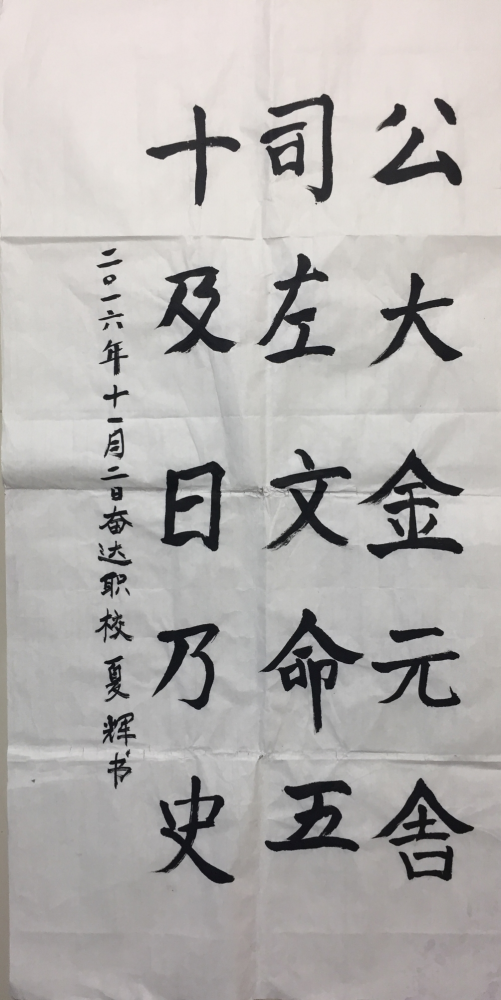 公大金元舍
司左文命五
十及日乃史
二〇一六年十一月二日奋达职校夏辉书